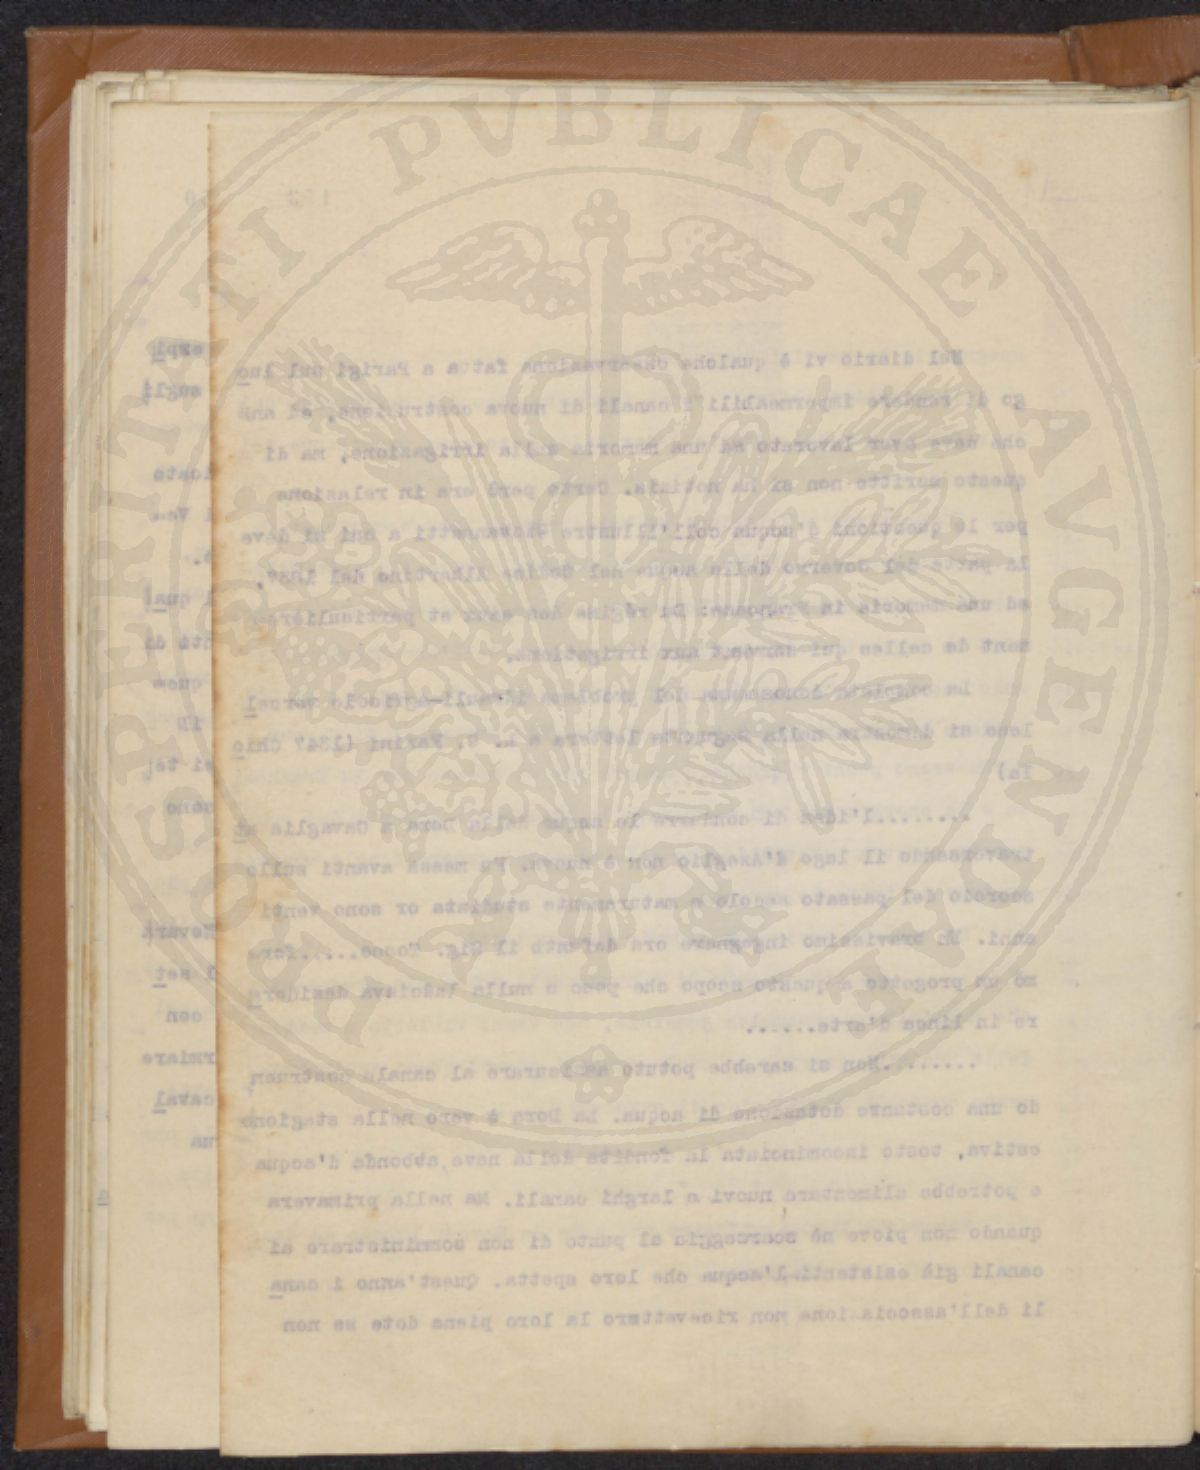 PROSPERITATI PVBLICAE AVGENDAE
Nel diario vi è qualche osservazione fatta a Parigi sul luo
go di rendere impermeabili i canali di nuova costruzione, ed an
che deve aver lavorato ad una memoria sulla irrigazione, ma di
questo scritto non si ha notizia. Certo però era in relazione
per le questioni d'acqua coll'illustre Giovannetti a cui si deve
la parte del Governo delle acque nel Codice Albertino del 1837,
ed una memoria in Francese: Du régime des eaux et particulière-
ment de celles qui servent aux irrigations.
La completa conoscenza del problema idrauli-agricolo vercel
lese si dimostra nella seguente lettera a L. C. Farini (1847 Chio
la)
.........l'idea di condurre le acque della Dora a Cavaglia at
traversando il lago d'Azeglio non è nuova. Fu messa avanti sullo
scorcio del passato secolo e maturamente studiata or sono venti
anni. Un bravissimo ingegnere ora defunto il Sig. Tocco......for
mò un progetto a questo scopo che poco o nulla lasciava desidera
re in linea d'arte......
.........Non si sarebbe potuto assicurare al canale costruen
do una costante dotazione di acqua. La Dora è vero nella stagione
estiva, tosto incominciata la fondita della neve, abbonda d'acqua
e potrebbe alimentare nuovi e larghi canali. Ma nella primavera
quando non piove nè scarseggia al punto di non somministrare ai
canali già esistenti l'acqua che loro spetta. Quest'anno i cana
li dell'associazione non ricevettero la loro piena dote se non